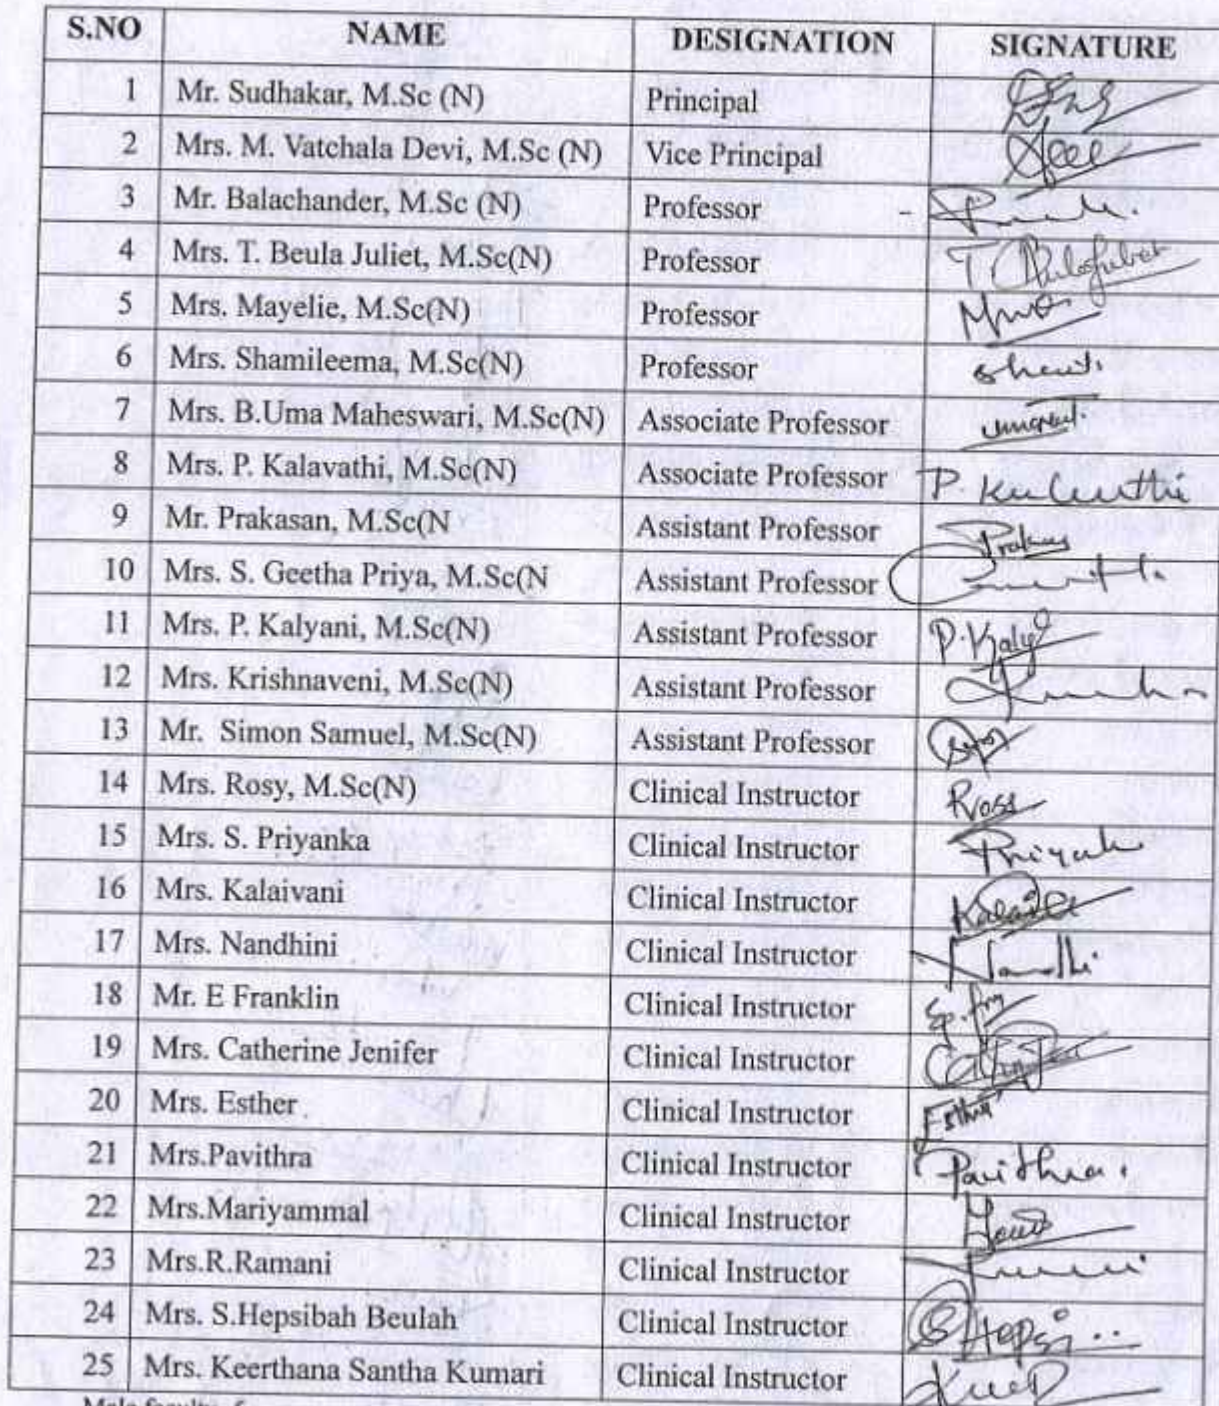 S.NO NAME DESIGNATION SIGNATURE
1 Mr. Sudhakar, M.Sc (N) Principal
2 Mrs. M. Vatchala Devi, M.Sc (N) Vice Principal
3 Mr. Balachander, M.Sc (N) Professor
4 Mrs. T. Beula Juliet, M.Sc(N) Professor
5 Mrs. Mayelie, M.Sc(N) Professor
6 Mrs. Shamileema, M.Sc(N) Professor
7 Mrs. B.Uma Maheswari, M.Sc(N) Associate Professor
8 Mrs. P. Kalavathi, M.Sc(N) Associate Professor
9 Mr. Prakasan, M.Sc(N Assistant Professor
10 Mrs. S. Geetha Priya, M.Sc(N Assistant Professor
11 Mrs. P. Kalyani, M.Sc(N) Assistant Professor
12 Mrs. Krishnaveni, M.Sc(N) Assistant Professor
13 Mr. Simon Samuel, M.Sc(N) Assistant Professor
14 Mrs. Rosy, M.Sc(N) Clinical Instructor
15 Mrs. S. Priyanka Clinical Instructor
16 Mrs. Kalaivani Clinical Instructor
17 Mrs. Nandhini Clinical Instructor
18 Mr. E Franklin Clinical Instructor
19 Mrs. Catherine Jenifer Clinical Instructor
20 Mrs. Esther Clinical Instructor
21 Mrs.Pavithra Clinical Instructor
22 Mrs.Mariyammal Clinical Instructor
23 Mrs.R.Ramani Clinical Instructor
24 Mrs. S.Hepsibah Beulah Clinical Instructor
25 Mrs. Keerthana Santha Kumari Clinical Instructor